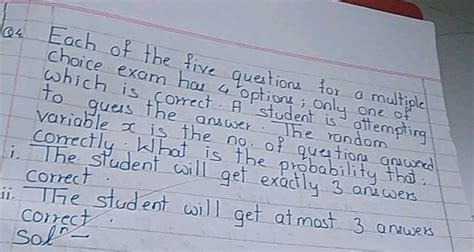 Q4 Each of the five questions for a multiple
choice exam has 4 options; only one of
which is correct. A student is attempting
to guess the answer. The random
variable x is the no. of questions answered
correctly. What is the probability that:
i. The student will get exactly 3 answers
correct.
ii. The student will get atmost 3 answers
correct.
Solⁿ -